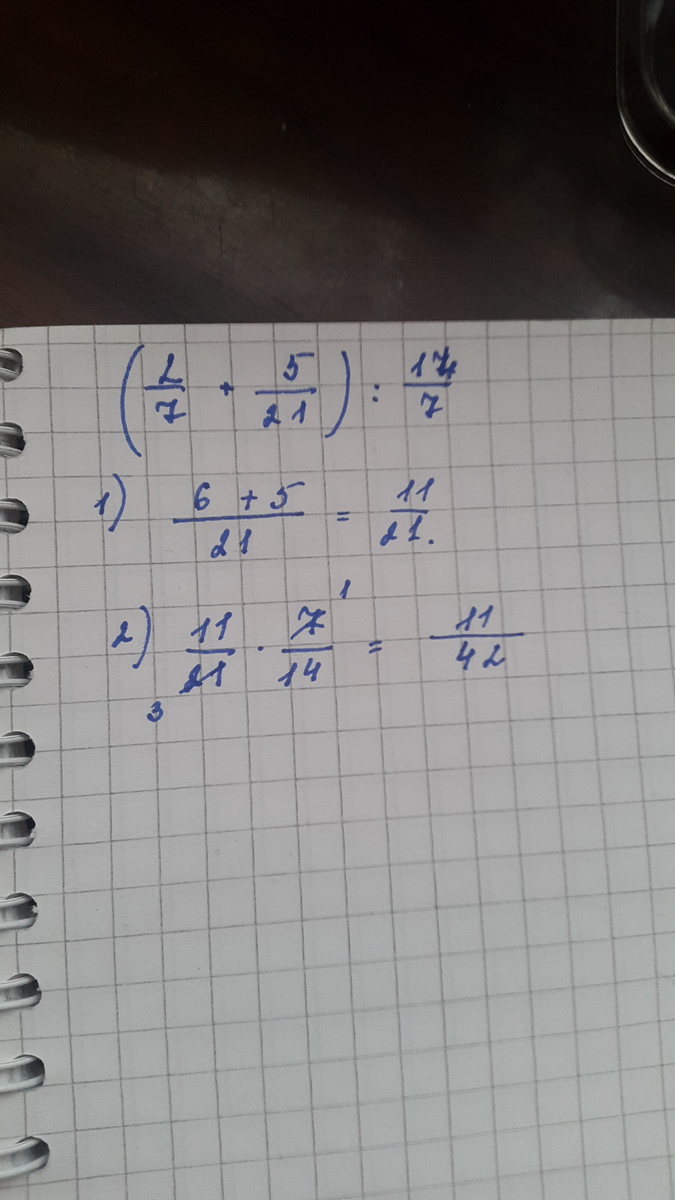 (2/7 + 5/21) : 14/7
1) (6 + 5)/21 = 11/21.
2) 11/21 3 · 7/14 1 = 11/42